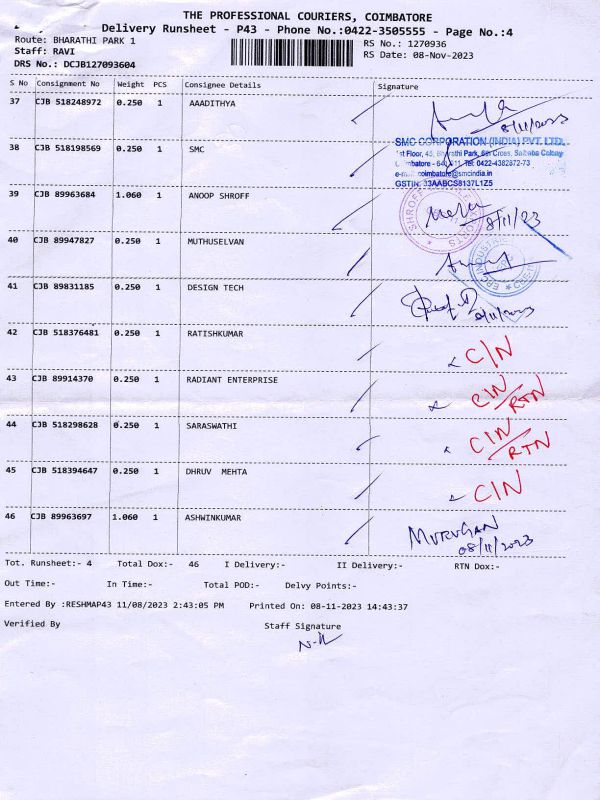 THE PROFESSIONAL COURIERS, COIMBATORE
Delivery Runsheet - P43 - Phone No.:0422-3505555 - Page No.:4
Route: BHARATHI PARK 1 RS No.: 1270936
Staff: RAVI RS Date: 08-Nov-2023
DRS No.: DCJB127093604
S No Consignment No Weight PCS Consignee Details Signature
37 CJB 518248972 0.250 1 AAADITHYA
8/11/2023
38 CJB 518198569 0.250 1 SMC
SMC CORPORATION (INDIA) PVT. LTD.
1st Floor, 45, Bharathi Park, 6th Cross, Saibaba Colony
Coimbatore - 641 011. Tel: 0422-4382872-73
e-mail: coimbatore@smcindia.in
GSTIN: 33AABCS8137L1Z5
39 CJB 89963684 1.060 1 ANOOP SHROFF
SHROFF EXPORTS
8/11/23
40 CJB 89947827 0.250 1 MUTHUSELVAN
41 CJB 89831185 0.250 1 DESIGN TECH
8/11/2023
42 CJB 518376481 0.250 1 RATISHKUMAR C/N
43 CJB 89914370 0.250 1 RADIANT ENTERPRISE CIN/RTN
44 CJB 518298628 0.250 1 SARASWATHI CIN/RTN
45 CJB 518394647 0.250 1 DHRUV MEHTA CIN
46 CJB 89963697 1.060 1 ASHWINKUMAR MURUGAN
08/11/2023
Tot. Runsheet:- 4 Total Dox:- 46 I Delivery:- II Delivery:- RTN Dox:-
Out Time:- In Time:- Total POD:- Delvy Points:-
Entered By :RESHMAP43 11/08/2023 2:43:05 PM Printed On: 08-11-2023 14:43:37
Verified By Staff Signature